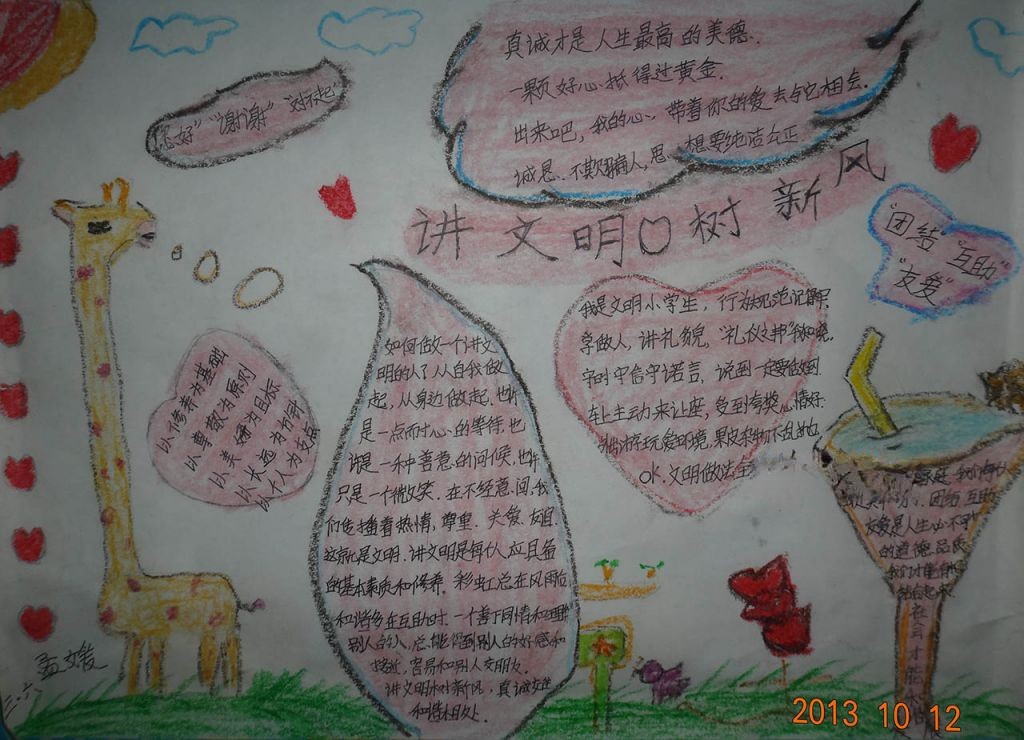 真诚才是人生最高的美德.
一颗好心抵得过黄金.
出来吧,我的心,带着你的爱去与它相会.
诚恳.不欺骗人,思想要纯洁公正
"您好""谢谢""对不起"
讲文明树新风
"团结""互助"
"友爱"
以修养为基础
以尊敬为原则
以美丽为目标
以长远为方向
以个人为支点
如何做一个讲文
明的人?从自我做
起,从身边做起.也许
是一点耐心的等待.也
许是一种善意的问候,也许
只是一个微笑.在不经意间,我
们传播着热情,尊重.关爱.友好.
这就是文明.讲文明是每个人应具备
的基本素质和修养.彩虹总在风雨后
和谐多在互助时.一个善于同情和理解
别人的人,总能得到别人的好感和
接近,容易和别人交朋友.
讲文明树新风,真诚友爱
和谐相处.
我是文明小学生,行为规范记得牢
学做人,讲礼貌,"礼仪之邦"我知晓.
守时守信守诺言,说到一定要做到
车上主动来让座,受到夸奖心情好
游玩爱环境,果皮杂物不乱抛
OK.文明做法
团结互助
友爱是人生必不可
的道德品质
我们才能
孟文媛
三.六
2013 10 12